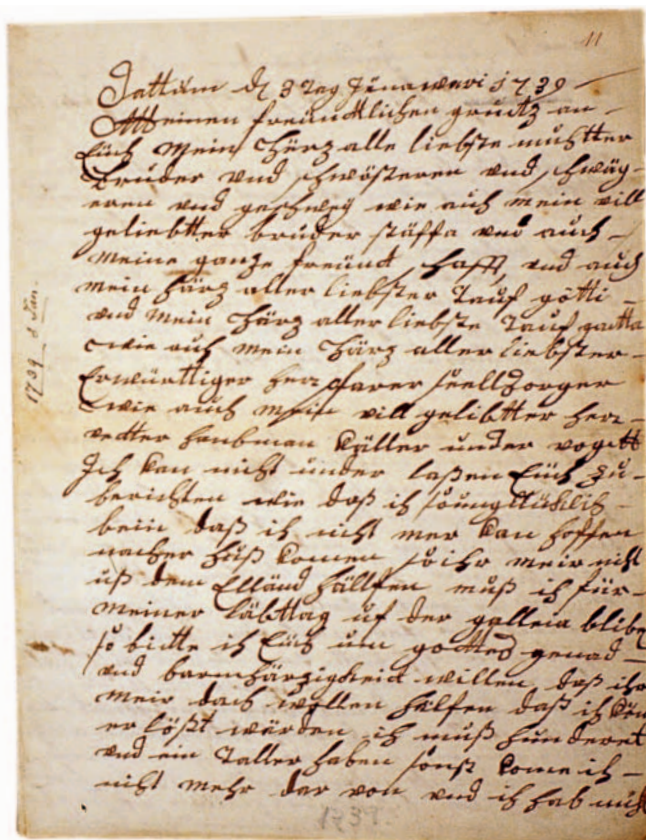 11
Dattum dh 8 tag Jenaweri 1739
Meinen freündtlichen grutz an
Eüch mein härz alle liebste muhtter
bruder vnd schwösteren vnd schwäg-
eren vnd geschwey wie auch mein vill
geliebtter bruder stäffa vnd auch
meine ganze freündt schafft vnd auch
mein härz aller liebster tauf götti
vnd mein härz aller liebste tauf gotta
wie auch mein härz aller liebster
Erwürttiger herr pfarer seellsorger
wie auch mein vill geliebtter herr
vetter haubman Käller under vogtt
Ich kan nicht under laßen Eüch zu-
berichten wie daß ich so ungklüklich
bein daß ich nicht mer kan hoffen
nacher huß komen so ihr meir nicht
uß dem Elländ hällffen muß ich für
meiner läbttag uf der galleia blibe
so bitte ich Eüch um gottes genad
vnd barmhärzigkeit willen daß ihr
meir doch wollen hälfen daß ich kön
er lößt wärden ich muß hunderet
vnd ein taller haben sonst kome ich
nicht mehr dar von vnd ich hab nicht
1739 8 Jan.
1739.